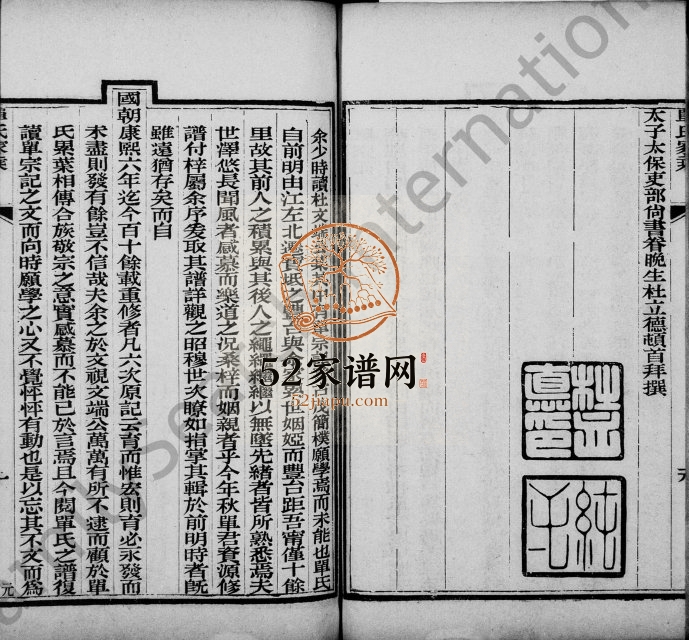 太子太保吏部尚書眷晚生杜立德頓首拜撰
杜立
純一
余少時讀杜文端公
簡樸願學焉而未能也單氏
自前明由江左北遷寶坻之豐台與
世姻婭而豐台距吾甯僅十餘
里故其前人之積累與其後人之繩繩繼繼以無墜先緒者皆所熟悉焉夫
世澤悠長聞風者感慕而樂道之況桑梓而姻親者乎今年秋單君資源修
譜付梓屬余序爰取其譜詳觀之昭穆世次瞭如指掌其輯於前明時者旣
雖遠猶存矣而自
國朝康熙六年迄今百十餘載重修者凡六次原記云育而惟宏則育必永發而
未盡則發有餘豈不信哉夫余之於文視文端公萬萬有所不逮而顧於單
氏累葉相傳合族敬宗之意實感慕而不能已於言焉且今閱單氏之譜復
讀單宗記之文而向時願學之心又不覺怦怦有動也是以忘其不文而爲
單氏家乘
元
52家谱网
52jiapu.com